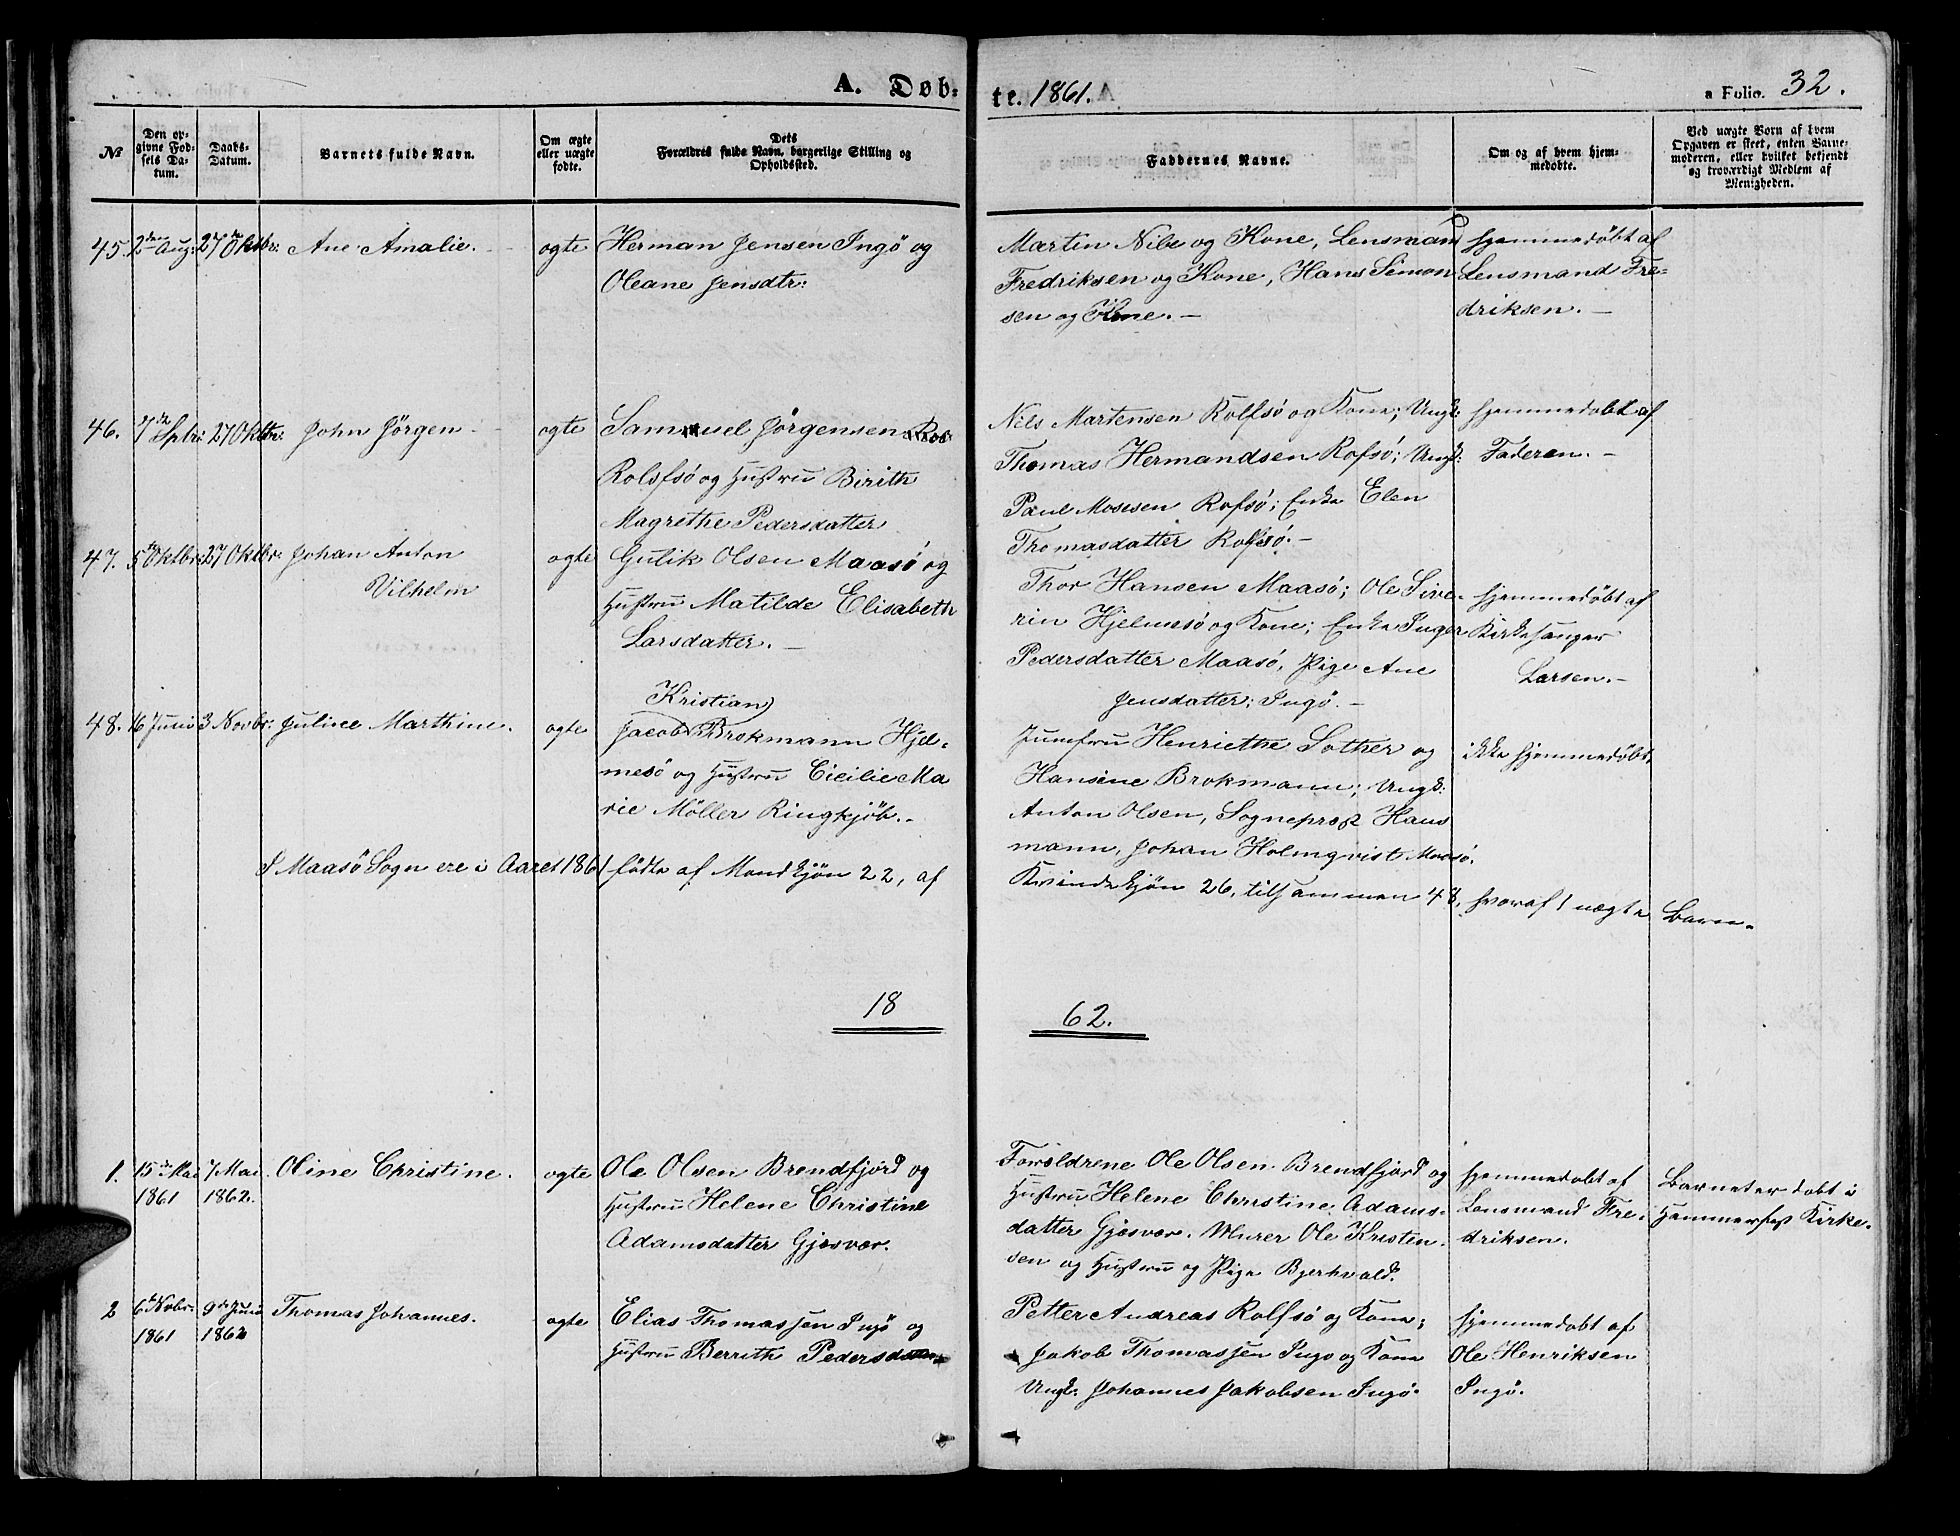 A. Døb-
te. 1861.
a Folio. 32.
No
Den op-
givne Fød-
sels Da-
tum.
Daabs-
Datum.
Barnets fulde Navn.
Om ægte
eller uægte
fødte.
Dets
Forældres fulde Navn, borgerlige Stilling og
Opholdssted.
Faddernes Navne.
Om og af hvem hjem-
medøbte.
Ved uægte Børn af hvem
Opgaven er skeet, enten Barne-
moderen, eller hvilket bekjendt
og troværdigt Medlem af
Menigheden.
45. 2den Aug: 27de Oktbr: Ane Amalie. ægte
Herman Jensen Ingö og
Oleane Jensdtr:
Martin Nibe og Kone, Lensmand
Fredriksen og Kone, Hans Simon
sen og Kone. —
hjemmedöbt af
Lensmand Fre-
driksen. —
46. 7de Sptbr: 27 Oktbr: John Jörgen ægte
Samuel Jörgensen
Rolsfsö og Hustru Birith
Magrethe Pedersdatter
Nels Martensen Rolfsö og Kone; Ungk:
Thomas Hermandsen Rofsö; Ungk:
Paul Mosesen Rofsö; Enke Elen
Thomasdatter Rolfsö. —
hjemmedöbt af
Faderen. —
47. 5te Oktbr: 27 Oktbr: Johan Anton
Vilhelm
ægte
Gulik Olsen Maasö og
Hustru Matilde Elisabeth
Larsdatter. —
Thor Hansen Maasö; Ole Sive-
rin Hjelmesö og Kone; Enke Inger
Pedersdatter Maasö, Pige Ane
Jensdatter; Ingö. —
hjemmedöbt af
Kirkesanger
Larsen. —
48. 16 Juni 3 Novbr: Juline Marthine. ægte
Kristian
Jacob Brokmann Hjel-
mesö og Hustru Cicilie Ma
rie Möller Ringkjöb. —
Jumfru Henriethe Sother og
Hansine Brokmann; Ungk:
Anton Olsen, Sogneprest Haus
mann, Johan Holmqvist Maasö.
ikke hjemmedöbt.
I Maasö Sogn ere i Aaret 1861 födte af Mandkjön 22, af
Kvindekjön 26, tilsammen 48, hvoraf 1 uægte Barn.
18
62.
1. 15de Mai 7 Mai Oline Christine. ægte
1861 1862.
Ole Olsen Brendfjord og
Hustru Helene Christine
Adamsdatter Gjesvær.
Forældrene Ole Olsen Brendfjord og
Hustru Helene Christine Adams-
datter Gjesvær. Murer Ole Kristen-
sen og Hustru og Pige Bjerhvald.
hjemmedöbt af
Lensmand Fre-
driksen.
Barnet er döbt i
Hammerfest Kirke.
2 6te Novbr: 9de Juni Thomas Johannes. ægte
1861 1862
Elias Thomassen Ingö og
Hustru Berrith Pedersdatter
Petter Andreas Rolfsö og Kone;
Jakob Thomassen Ingö og Kone
Ungk: Johannes Jakobsen Ingö.
hjemmedöbt af
Ole Henriksen
Ingö.